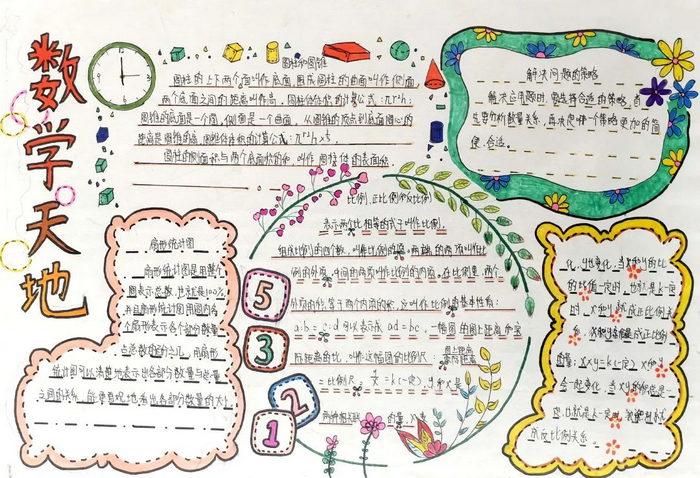 数学天地
圆柱和圆锥
圆柱的上下两个面叫作底面，围成圆柱的曲面叫作侧面，
两个底面之间的距离叫作高，圆柱体体积的计算公式：πr²h；
圆锥的底面是一个圆，侧面是一个曲面，从圆锥的顶点到底面圆心的
距离是圆锥的高，圆锥体体积的计算公式：πr²h×⅓，
圆柱的侧面积与两个底面积的和，叫作圆柱体的表面积
解决问题的策略
解决应题时，要选择合适的策略，首
先要分析数量关系，再决定哪一个策略更加的简
便、合适。
扇形统计图
扇形统计图是用整个
圆表示总数，也就是100%
并且扇形统计图用圆内各
个扇形表示各部分的数量
占总数的百分之几，用扇形
统计图可以清楚地表示出各部分数量与总量
之间的关系，能更直观地看出各部分数量的大小
5
3
2
1
比例、正比例和反比例
表示两个比相等的式子叫作比例，
组成比例的四个数，叫作比例的项。两端的两项叫作比
例的外项，中间的两项叫作比例的内项。在比例里，两个
外项的积等于两个内项的积，这叫作比例的基本性质：
a:b=c:d 可以表示成 ad=bc，一幅图的图上距离和实
际距离的比，叫作这幅图的比例尺，图上距离
=比例尺，=k(一定)，y和x是
两种相关联的量，x变
化，y也变化，当x和y的比
的比值一定时，也就是k一定
时，x和y就成正比例
关系，
量；x×y=k(一定)，x和y
会一起变化，当x与y的积总是一
定，也就是k一定时，我们把
成反比例关系。